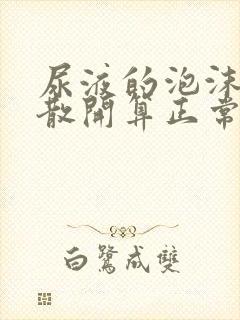 尿液的泡沫
散開算正常
白鷺成雙